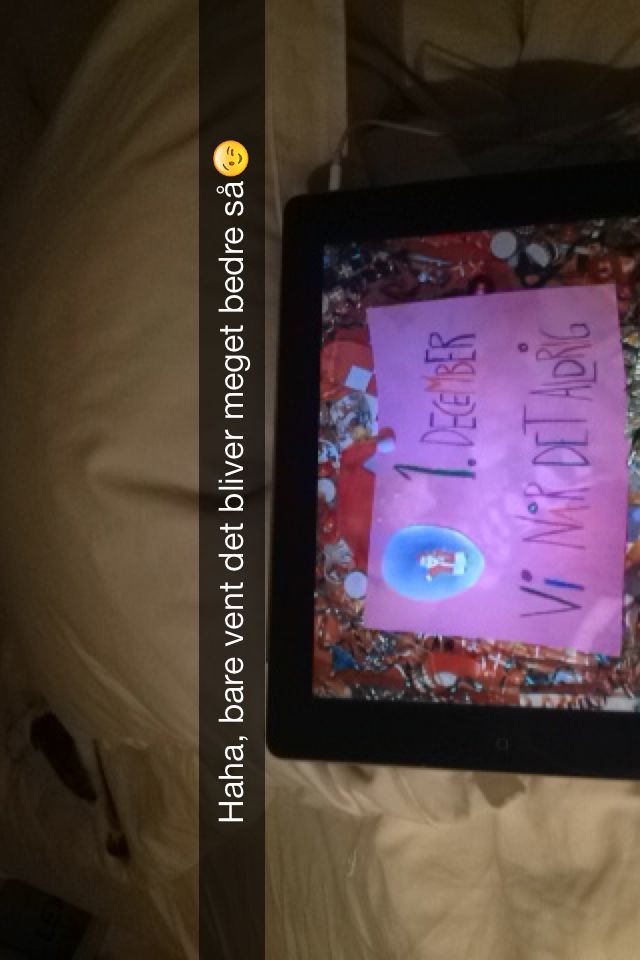 Haha, bare vent det bliver meget bedre så😉
1. DECEMBER
Vi NÅR DET ALDRIG